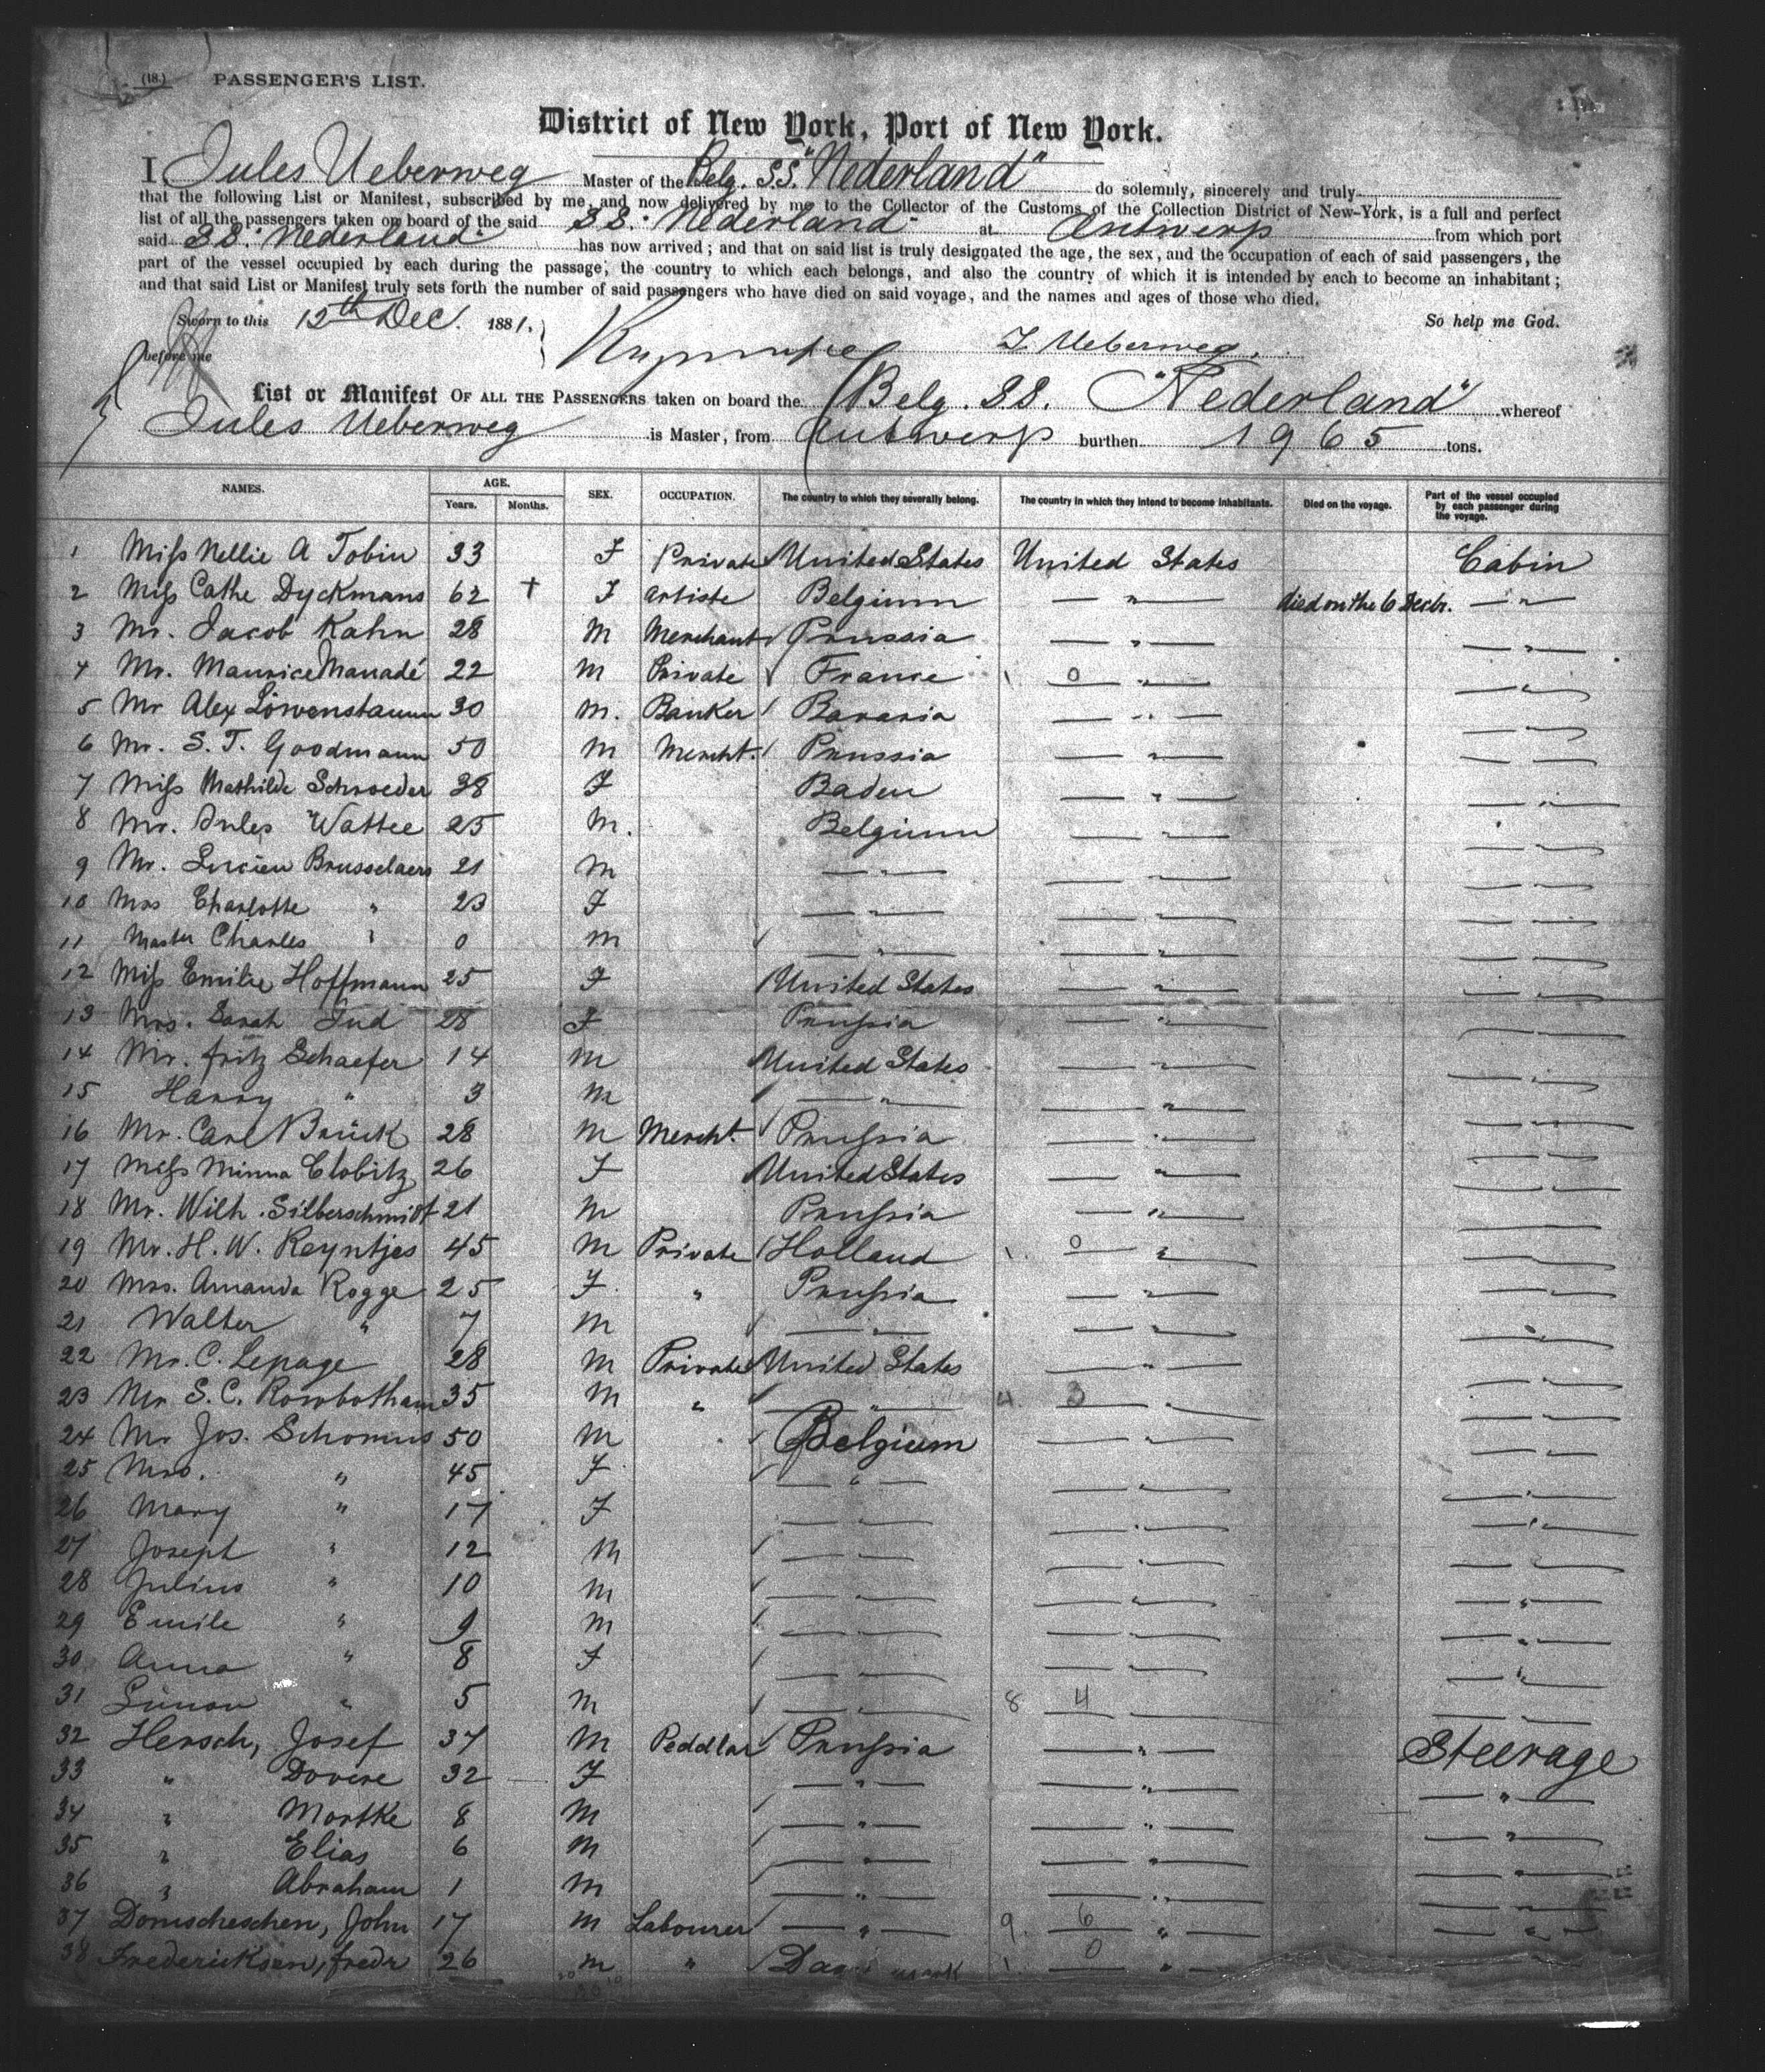 (18.) PASSENGER'S LIST.
District of New York, Port of New York.
I, Jules Ueberweg Master of the Belg. SS. "Nederland" do solemnly, sincerely and truly
that the following List or Manifest, subscribed by me, and now delivered by me to the Collector of the Customs of the Collection District of New-York, is a full and perfect
list of all the passengers taken on board of the said SS. Nederland at Antwerp from which port
said SS. Nederland has now arrived; and that on said list is truly designated the age, the sex, and the occupation of each of said passengers, the
part of the vessel occupied by each during the passage, the country to which each belongs, and also the country of which it is intended by each to become an inhabitant;
and that said List or Manifest truly sets forth the number of said passengers who have died on said voyage, and the names and ages of those who died.
So help me God.
Sworn to this 12th Dec. 1881.
before me J. Ueberweg.
List or Manifest OF ALL THE PASSENGERS taken on board the Belg. SS. "Nederland" whereof
Jules Ueberweg is Master, from Antwerp burthen 1965 tons.
NAMES. AGE. Years. Months. SEX. OCCUPATION. The country to which they severally belong. The country in which they intend to become inhabitants. Died on the voyage. Part of the vessel occupied by each passenger during the voyage.
1 Miss Nellie A Tobin 33 F Private United States United States Cabin
2 Miss Cathe Dyckmans 62 † F artiste Belgium — " — died on the 6 Decbr. — " —
3 Mr. Jacob Kahn 28 M Merchant Prussia — " — — " —
4 Mr. Maurice Manadé 22 M Private France 1. 0 — " — — " —
5 Mr Alex Löwenstamm 30 M. Banker Bavaria — " — — " —
6 Mr. S. T. Goodmann 50 M Mercht. Prussia — " — — " —
7 Miss Mathilde Schroeder 38 F Baden — " — — " —
8 Mr. Jules Wattee 25 M. Belgium — " — — " —
9 Mr. Lucien Brusselaers 21 M — " — — " — — " —
10 Mrs Charlotte " 23 F — " — — " — — " —
11 Master Charles " 0 M — " — — " — — " —
12 Miss Emilie Hoffmann 25 F United States — " — — " —
13 Mrs. Sarah Jud 28 F Prussia — " — — " —
14 Mr. Fritz Schaefer 14 M United States — " — — " —
15 Harry " 3 M — " — — " — — " —
16 Mr. Carl Brück 28 M Mercht. Prussia — " — — " —
17 Miss Minna Clobitz 26 F United States — " — — " —
18 Mr. Wilh. Silberschmidt 21 M Prussia — " — — " —
19 Mr. H. W. Reyntjes 45 M Private Holland 1. 0 — " — — " —
20 Mrs. Amanda Rogge 25 F " Prussia — " — — " —
21 Walter " 7 M — " — — " — — " —
22 Mr. C. Lepage 28 M Private United States — " — — " —
23 Mr S. C. Rowbotham 35 M " — " — 4. 3 — " — — " —
24 Mr Jos. Schomus 50 M Belgium — " — — " —
25 Mrs. " 45 F — " — — " — — " —
26 Mary " 17 F — " — — " — — " —
27 Joseph " 12 M — " — — " — — " —
28 Julius " 10 M — " — — " — — " —
29 Emile " 9 M — " — — " — — " —
30 Anna " 8 F — " — — " — — " —
31 Simon " 5 M — " — 8 4 — " — — " —
32 Hersch, Josef 37 M Peddlar Prussia — " — Steerage
33 " Dovere 32 F — " — — " — — " —
34 " Mortke 8 M — " — — " — — " —
35 " Elias 6 M — " — — " — — " —
36 " Abraham 1 M — " — — " — — " —
37 Domscheschen, John 17 M Labourer — " — 9. 6 — " — — " —
38 Fredericksen, Fredr 26 M " 1. 0 — " — — " —